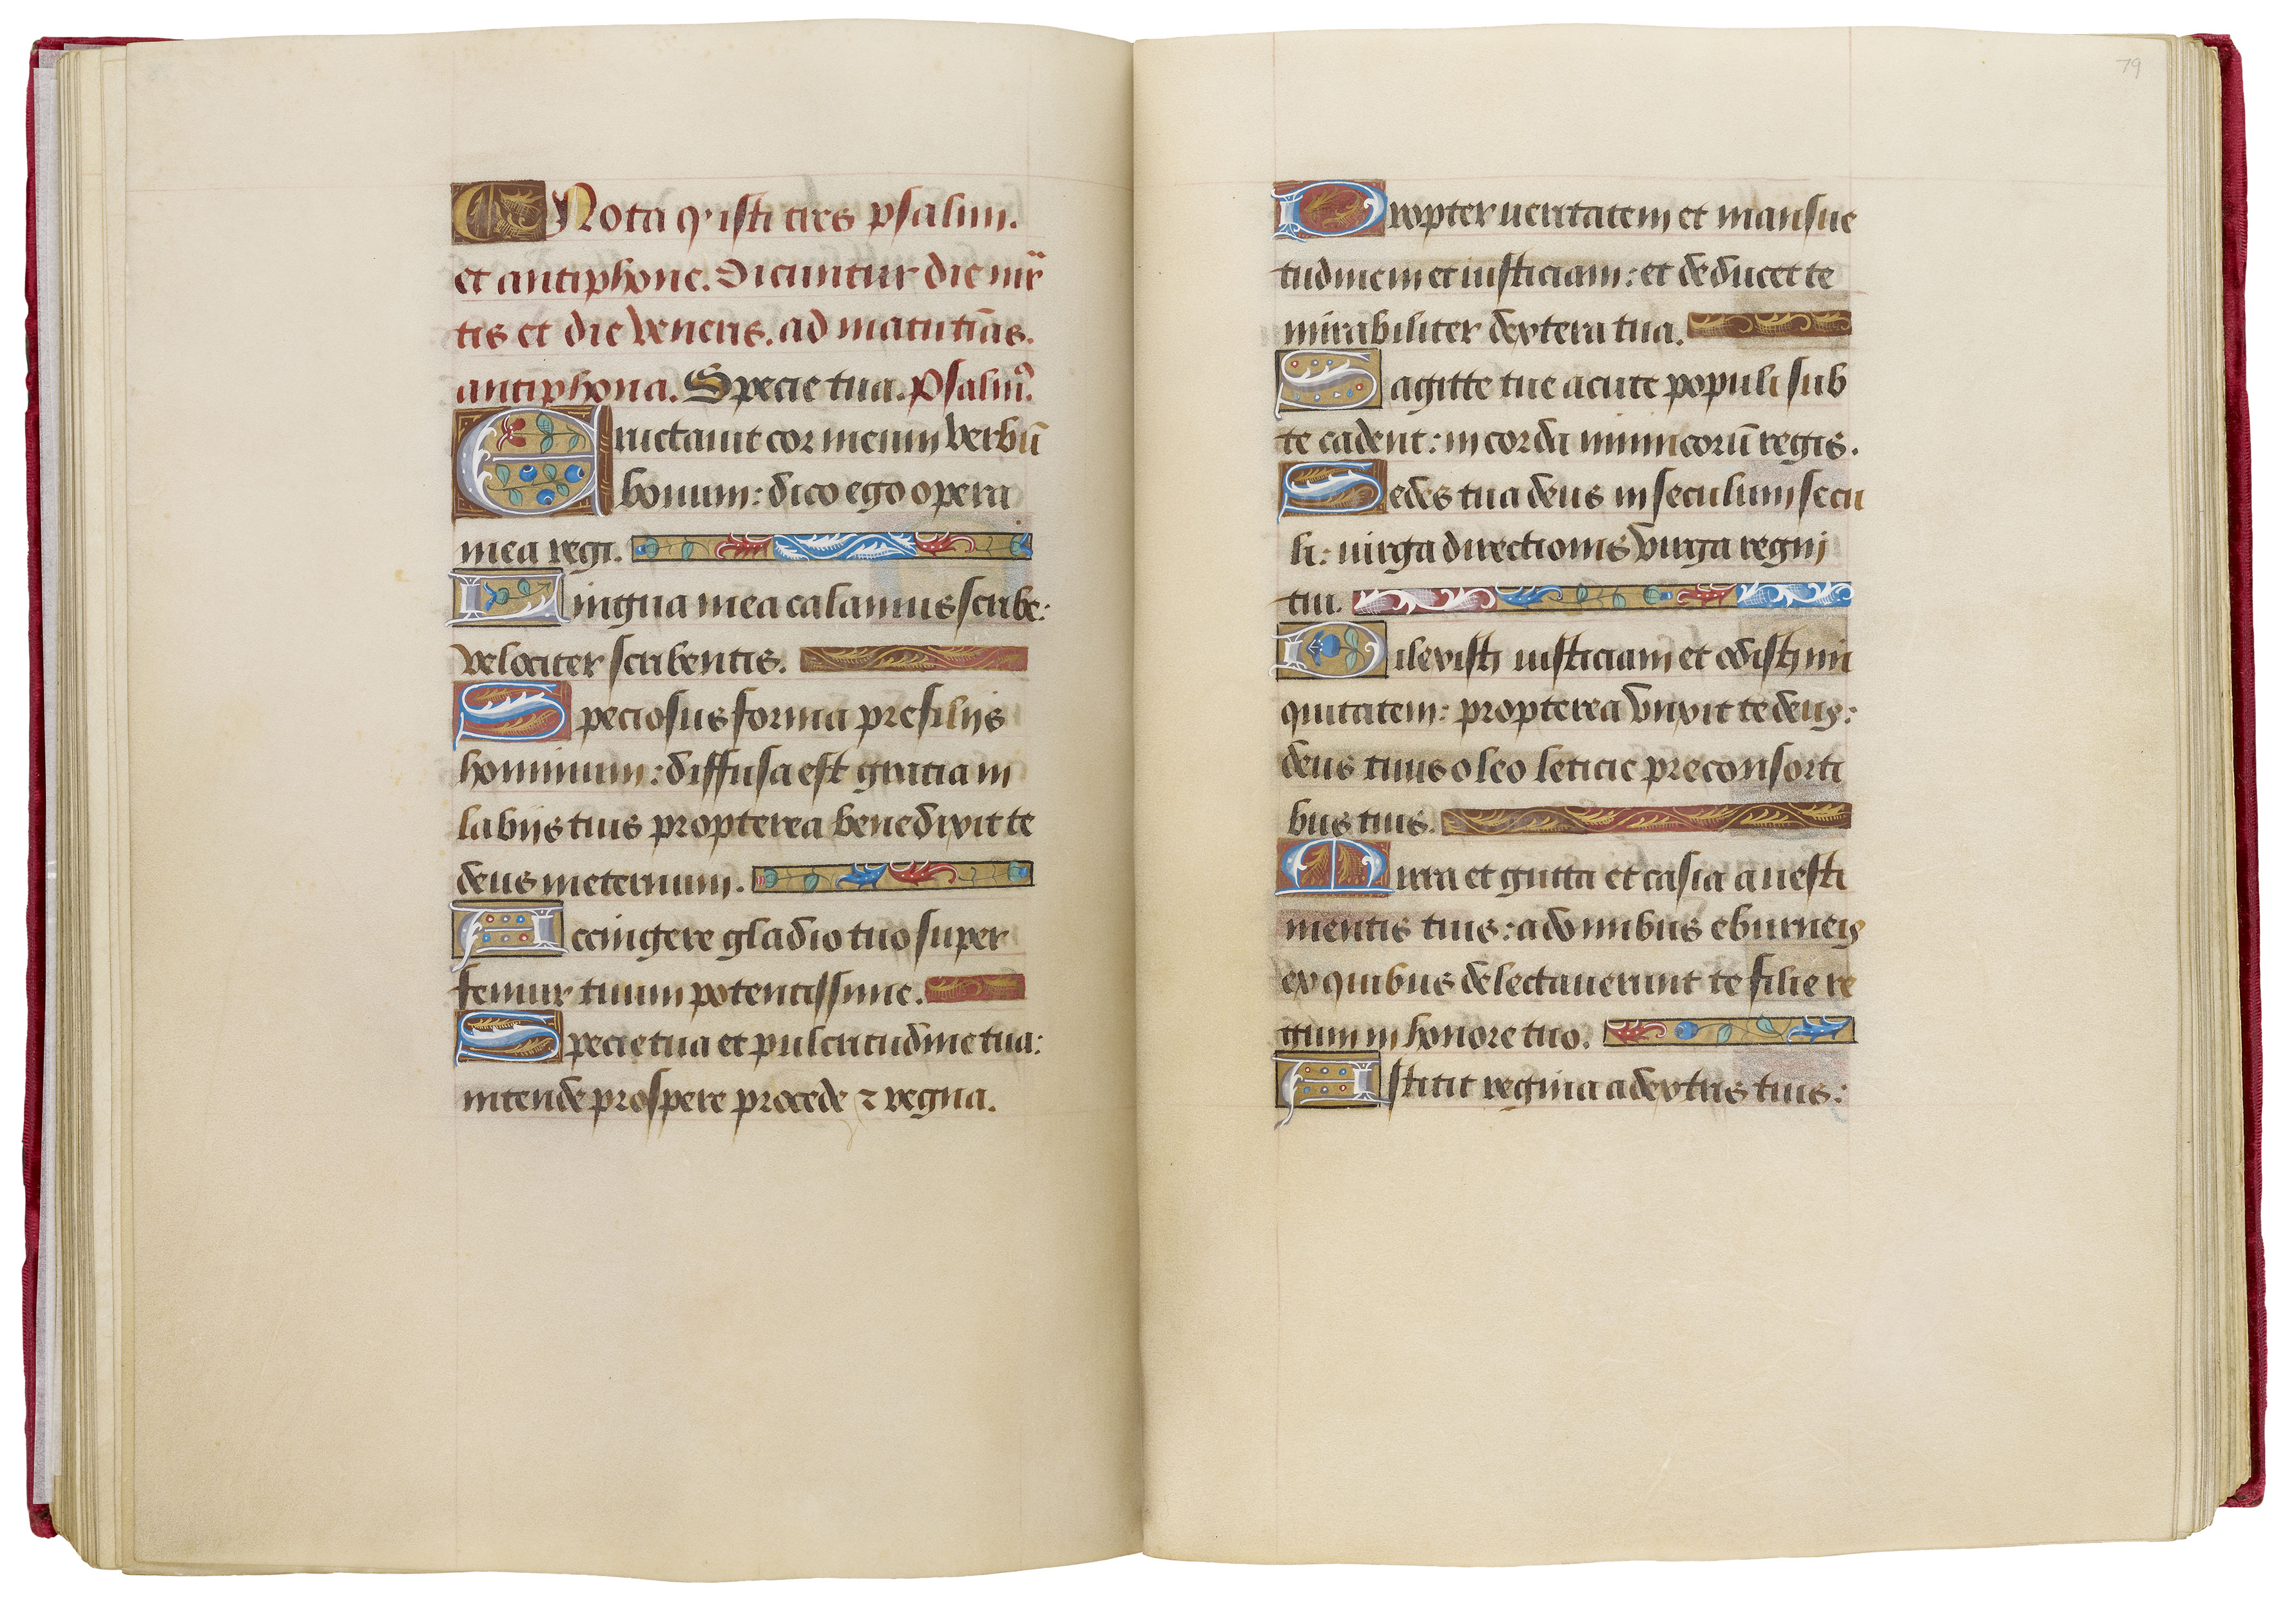 Nota q' isti tres psalmi.
et antiphone. Dicuntur die mr̃
tis et die veneris. ad matutiãs.
antiphona. Specie tua. Psalm9.
Eructauit cor meum verbũ
bonum: dico ego opera
mea regi.
Lingua mea calamus scribe:
velociter scribentis.
Speciosus forma pre filijs
hominum: diffusa est gracia in
labijs tuis propterea benedixit te
deus in eternum.
Accingere gladio tuo super
femur tuum potentissime.
Specie tua et pulcritudine tua:
intende prospere procede ⁊ regna.
79
Propter ueritatem et mansue
tudinem et iusticiam: et deducet te
mirabiliter dextera tua.
Sagitte tue acute populi sub
te cadent: in corda inimicorũ regis.
Sedes tua deus in seculum secu
li: uirga directionis virga regni
tui.
Dilexisti iusticiam et odisti ini
quitatem: propterea vnxit te deus:
deus tuus oleo leticie pre consorti
bus tuis.
Mirra et gutta et casia a uesti
mentis tuis: a domibus eburneis
ex quibus delectauerunt te filie re
gum in honore tuo.
Astitit regina a dextris tuis: